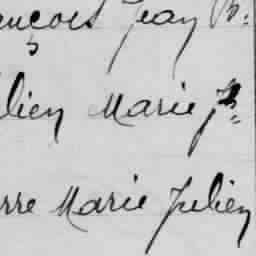 ençois Jean B.
lien Marie J.
rre Marie Julien